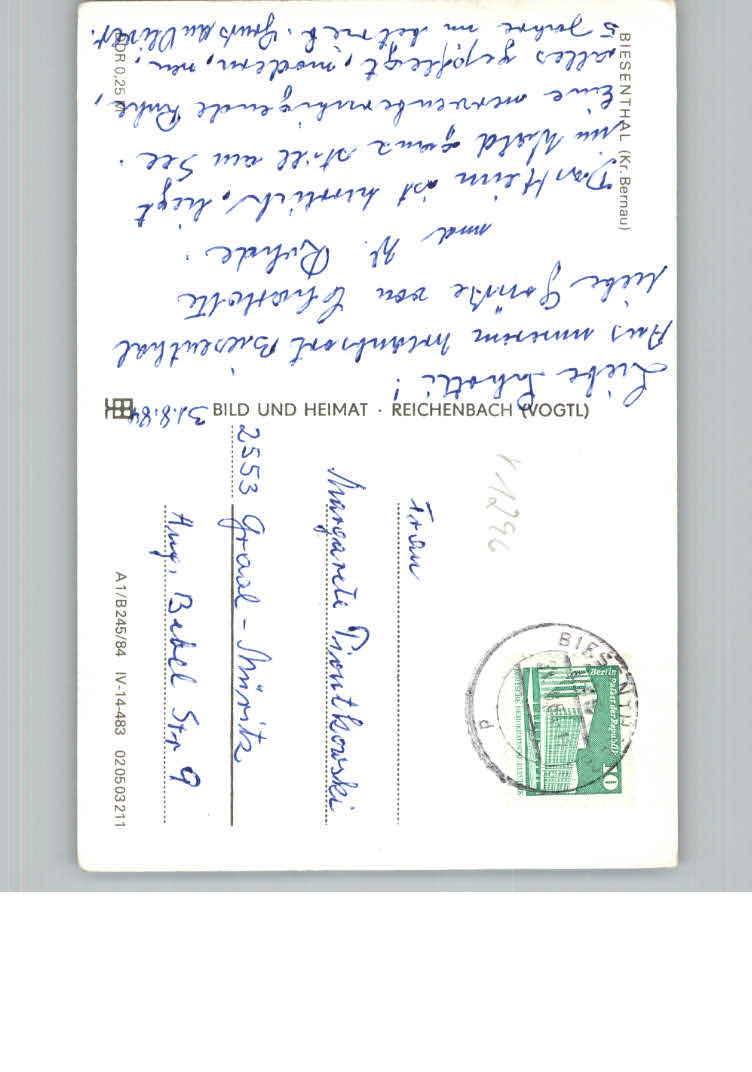 BIESENTHAL (Kr. Bernau)
31.8.84
Liebe Schotti!
Aus unserem Urlaubsort Biesenthal
liebe Grüße von Charlotte
und W. Rohde.
Das Heim ist herrlich, liegt
im Wald ganz still am See.
Eine nervenberuhigende Ruhe,
alles gepflegt, modern, neu,
5 Jahre im Betrieb. Gruß an Oliver.
DDR 0,25 M
BILD UND HEIMAT · REICHENBACH (VOGTL)
V 11296
BIESENTHAL
Berlin Palast der Republik
10
DEUTSCHE DEMOKRATISCHE REPUBLIK
Frau
Margarete Piontkowski
2553 Graal-Müritz
Aug. Bebel Str 9
A1/B245/84 IV-14-483 020503211